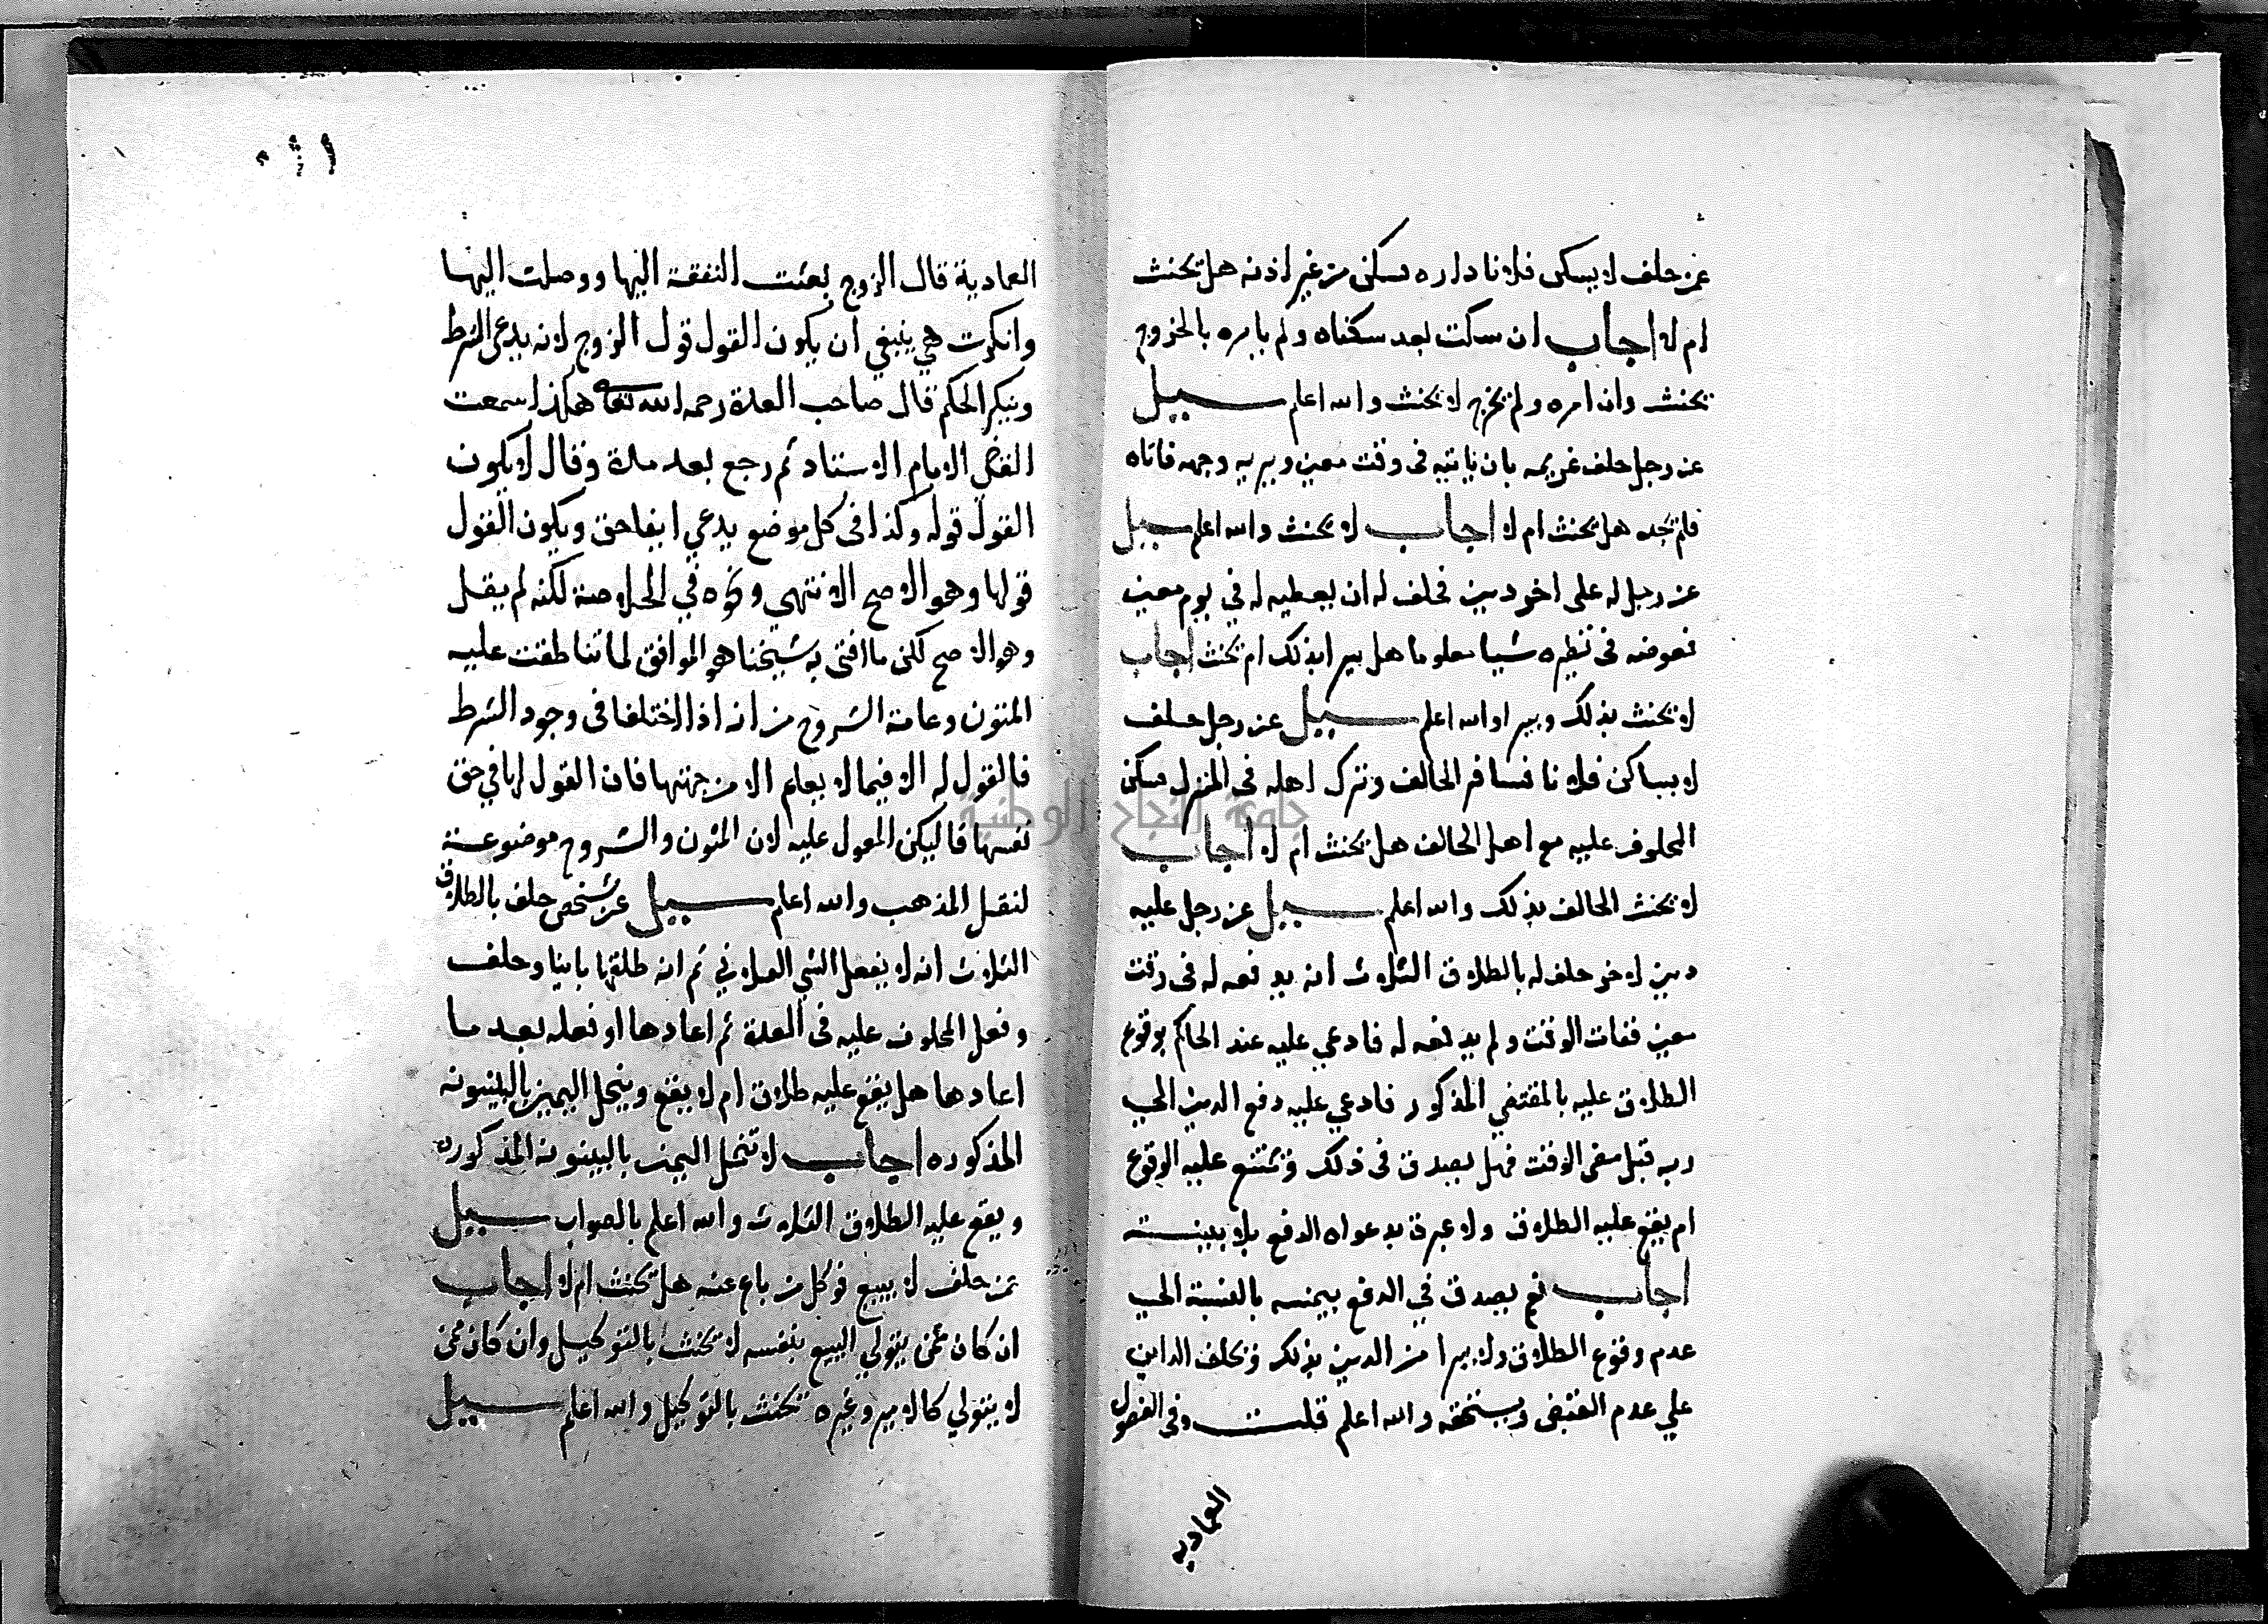 عن حلف لا يسكن فلانا داره فسكن من غير اذنه هل يحنث
ام لا اجاب ان سكت بعد سكناه ولم يامره بالخروج
يحنث وان امره ولم يخرج لا يحنث والله اعلم سيل
عن رجل حلف غريمه بان ياتيه في وقت معين ويريه وجهه فاتاه
فلم يجده هل يحنث ام لا اجاب لا يحنث والله اعلم سيل
عن رجل له على اخر دين فحلف له ان يعطيه له في يوم معين
فعوضه في نظيره شيا معلوما هل يبرا بذلك ام يحنث اجاب
لا يحنث بذلك ويبرا والله اعلم سيل عن رجل حلف
لا يساكن فلانا فسافر الحالف وترك اهله في المنزل فسكن
المحلوف عليه مع اهل الحالف هل يحنث ام لا اجاب
لا يحنث الحالف بذلك والله اعلم سيل عن رجل عليه
دين لاخر حلف له بالطلاق الثلاث انه يدفعه له في وقت
معين ففات الوقت ولم يدفعه له فادعي عليه عند الحاكم بوقوع
الطلاق عليه بالمقتضي المذكور فادعي عليه دفع الدين الي
ربه قبل مضى الوقت فهل يصدق في ذلك ويمتنع عليه الوقوع
ام يقع عليه الطلاق ولا عبرة بدعواه الدفع بلا بينة
اجاب نعم يصدق في الدفع بيمينه بالنسبة الي
عدم وقوع الطلاق ولا يبرا من الدين بذلك ويحلف الداين
علي عدم القبض ويستحقه والله اعلم قلت وفي الفصول
العمادية
العمادية قال الزوج بعثت النفقة اليها ووصلت اليها
وانكرت هي ينبغي ان يكون القول قول الزوج لانه يدعي الشرط
وينكر الحكم قال صاحب العدة رحمه الله تعالى هكذا سمعت
القاضي الامام الاستاد ثم رجع بعد مدة وقال لا يكون
القول قوله وكذا في كل موضع يدعي ايفا حق ويكون القول
قولها وهو الاصح الا نتهي ونحوه في الخلاصة لكنه لم يقل
وهو الاصح لكن ما افتى به شيخنا هو الموافق لما تناطقت عليه
المتون وعامة الشروح من انه اذا اختلفا في وجود الشرط
فالقول له الا فيما لا يعلم الا من جهتها فان القول لها في حق
نفسها فاليكن المعول عليه لان المتون والشروح موضوعة
لنقل المذهب والله اعلم سيل عن شخص حلف بالطلاق
الثلاث انه لا يفعل الشي الفلاني ثم انه طلقها باينا وحلف
وفعل المحلوف عليه في العدة ثم اعادها او فعله بعد ما
اعادها هل يقع عليه طلاق ام لا يقع وينحل اليمين بالبينونه
المذكوره اجاب لا تنحل اليمين بالبينونة المذكوره
ويقع عليه الطلاق الثلاث والله اعلم بالصواب سيل
عن حلف لا يبيع فوكل من باع عنه هل يحنث ام لا اجاب
ان كان ممن يتولي البيع بنفسه لا يحنث بالتوكيل وان كان ممن
لا يتولي كالامير وغيره يحنث بالتوكيل والله اعلم سيل
جامعة النجاح الوطنية